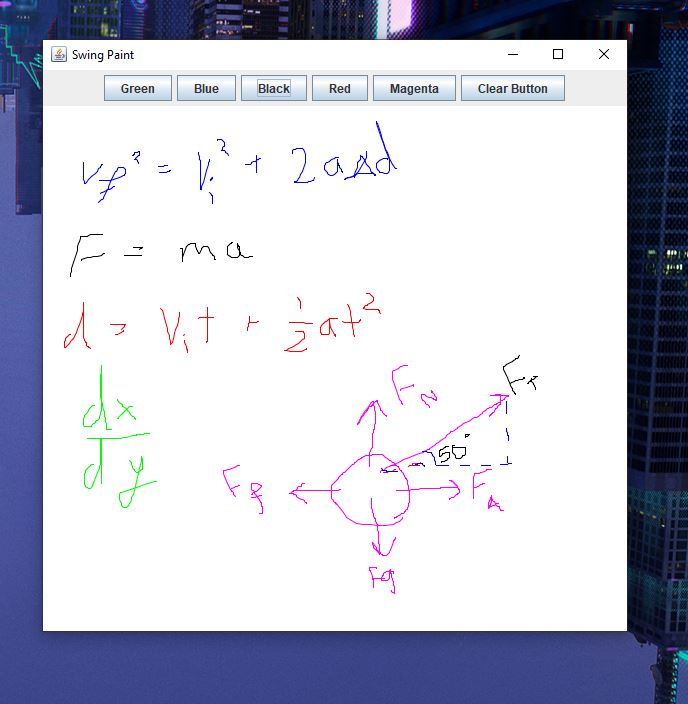 Swing Paint
Green Blue Black Red Magenta Clear Button
vf² = Vi² + 2aΔd
F = ma
d = Vit + 1/2at²
dx/dy
FN
FT
50°
Ff
FA
Fg